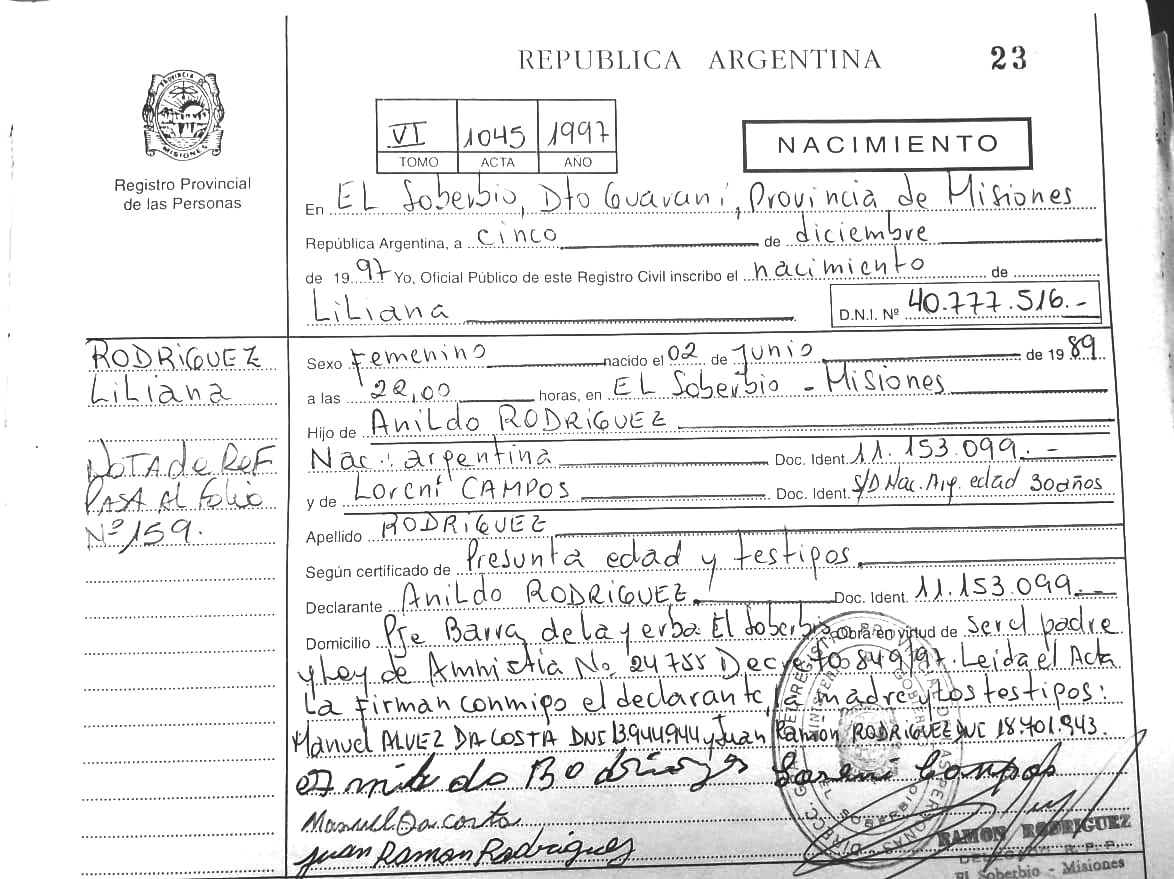 REPUBLICA ARGENTINA 23
PROVINCIA DE MISIONES
Registro Provincial
de las Personas
VI 1045 1997
TOMO ACTA AÑO
NACIMIENTO
En EL Soberbio, Dto Guaraní, Provincia de Misiones
República Argentina, a cinco de diciembre
de 1997 Yo, Oficial Público de este Registro Civil inscribo el nacimiento de
Liliana D.N.I. Nº 40.777.516.-
RODRIGUEZ
Liliana
NOTA de REF.
PASA AL Folio
Nº 159.
Sexo Femenino nacido el 02 de Junio de 1989
a las 22,00 horas, en EL Soberbio - Misiones
Hijo de Anildo RODRIGUEZ
Nac: argentina Doc. Ident. 11.153.099.-
y de Loreni CAMPOS Doc. Ident. S/D Nac. Arg. edad 30 años
Apellido RODRIGUEZ
Según certificado de Presunta edad y testigos
Declarante Anildo RODRIGUEZ Doc. Ident. 11.153.099.-
Domicilio Pje Barra de la yerba El Soberbio Obra en virtud de ser el padre
y Ley de Amnistia No. 24755 Decreto 849/97. Leida el Acta
La Firman conmigo el declarante, madre y los testigos:
Manuel ALVEZ DA COSTA DNI 13944944 y Juan Ramon RODRIGUEZ DNI 18.701.943.
Loreni Campos
Manuel Da costa
Juan Ramon Rodriguez
RAMON RODRIGUEZ
El Soberbio - Misiones